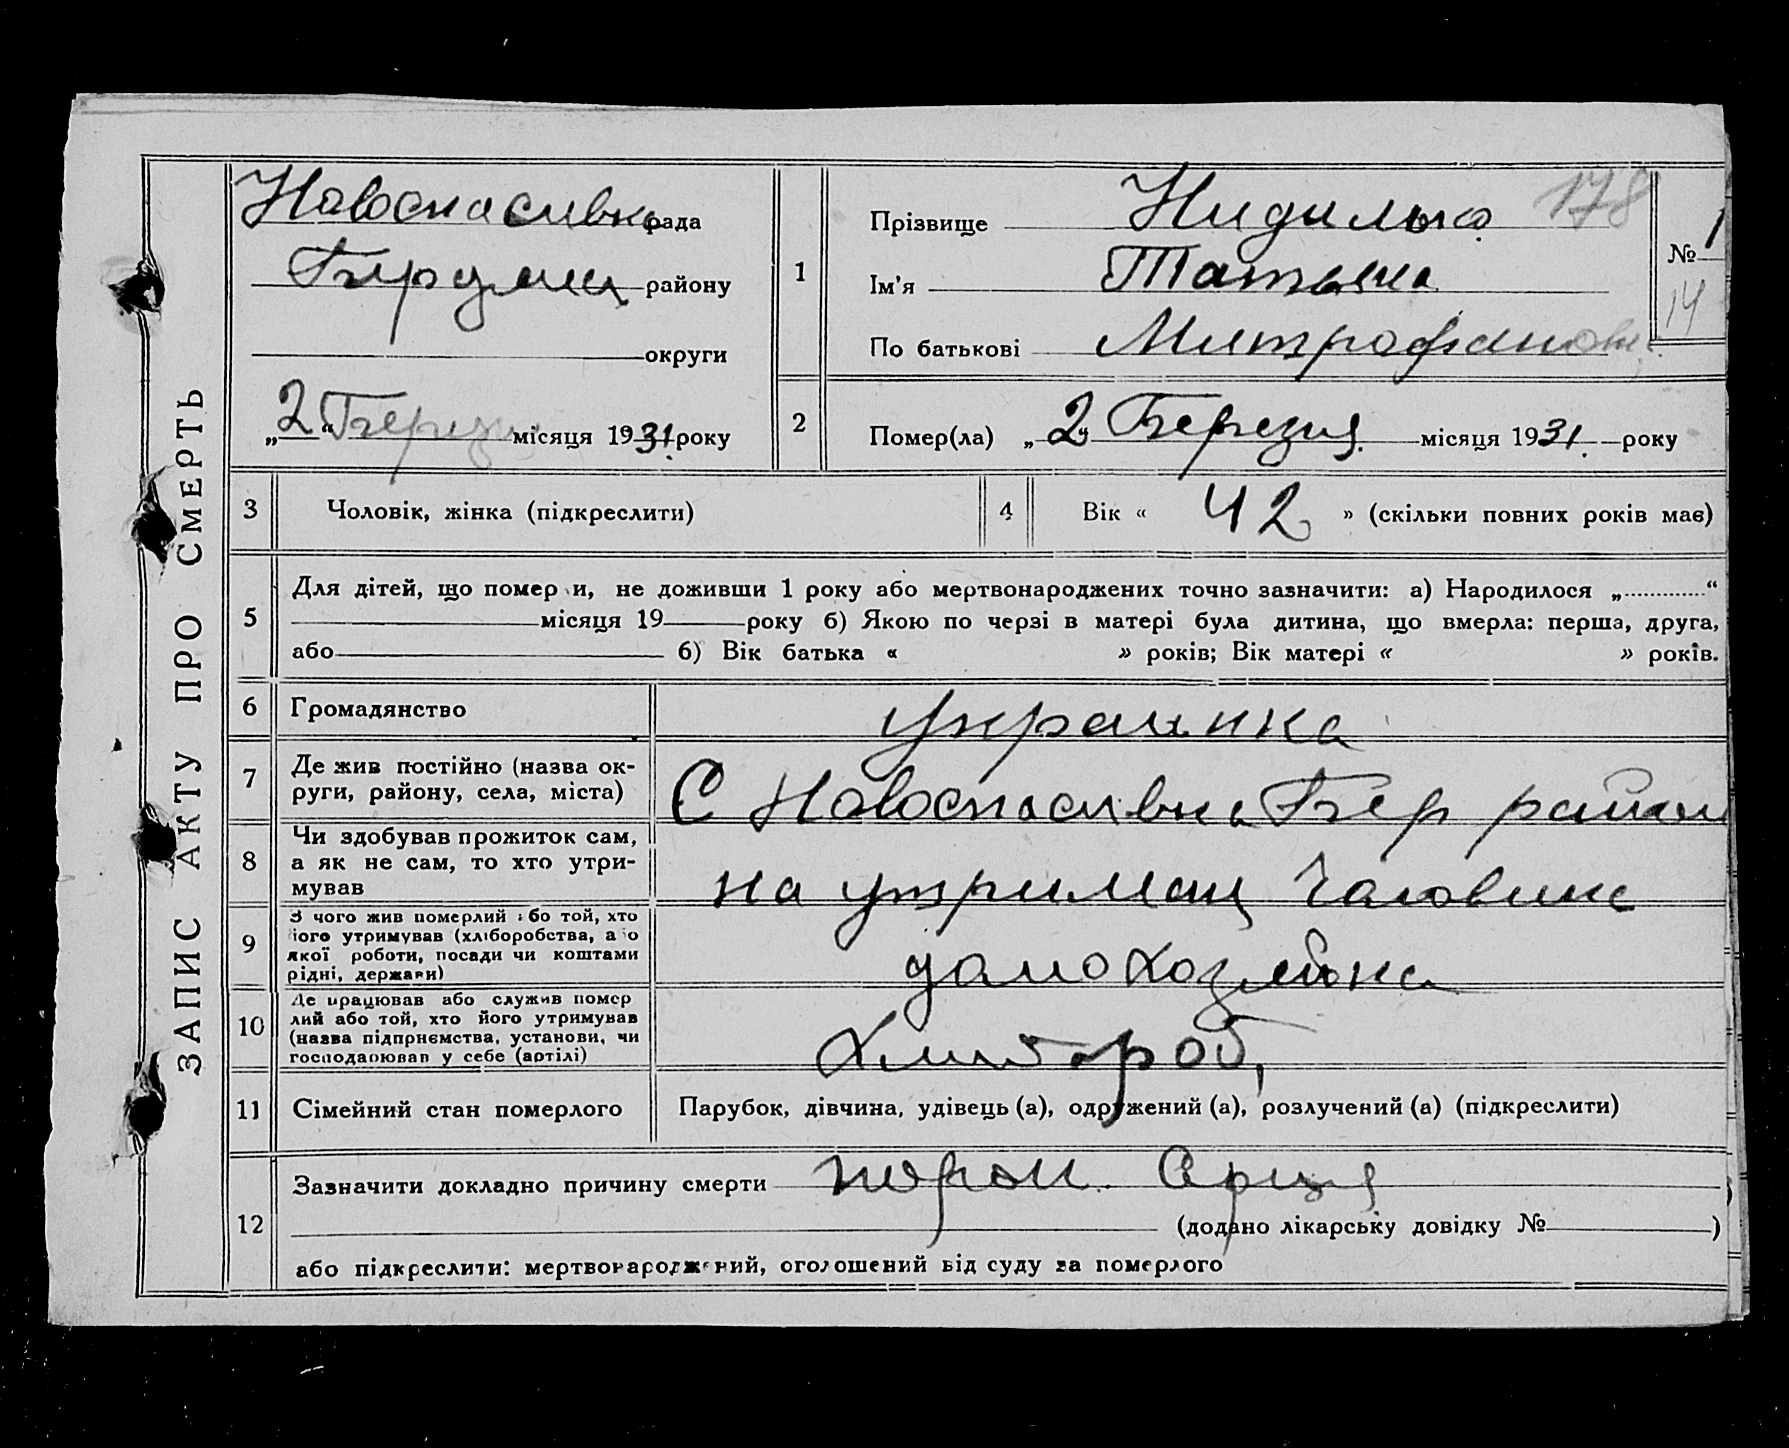 ЗАПИС АКТУ ПРО СМЕРТЬ
Новоспасивка рада
Бердянц району
округи
„2“ Березня місяця 1931 року
1
Прізвище Нидилько 178
Ім'я Татьяна
По батькові Митрофановна
№ 1
14
2
Помер(ла) „2“ Березня місяця 1931 року
3 Чоловік, жінка (підкреслити)
4 Вік « 42 » (скільки повних років має)
5 Для дітей, що помер и, не доживши 1 року або мертвонароджених точно зазначити: а) Народилося „ “
місяця 19 року б) Якою по черзі в матері була дитина, що вмерла: перша, друга,
або б) Вік батька « » років; Вік матері « » років.
6 Громадянство украинка
7 Де жив постійно (назва ок-
руги, району, села, міста) С Новоспасивка Бер район
8 Чи здобував прожиток сам,
а як не сам, то хто утри-
мував на утриман Чаловика
9 З чого жив померлий або той, хто
його утримував (хліборобства, або
якої роботи, посади чи коштами
рідні, держави) домохозяйка
10 Де працював або служив помер
лий або той, хто його утримував
(назва підприємства, установи, чи
господарював у себе (артілі) Хлибороб,
11 Сімейний стан померлого Парубок, дівчина, удівець (а), одружений (а), розлучений (а) (підкреслити)
12 Зазначити докладно причину смерти порок. Серця
(додано лікарську довідку № )
або підкреслити: мертвонароджений, оголошений від суду за померлого